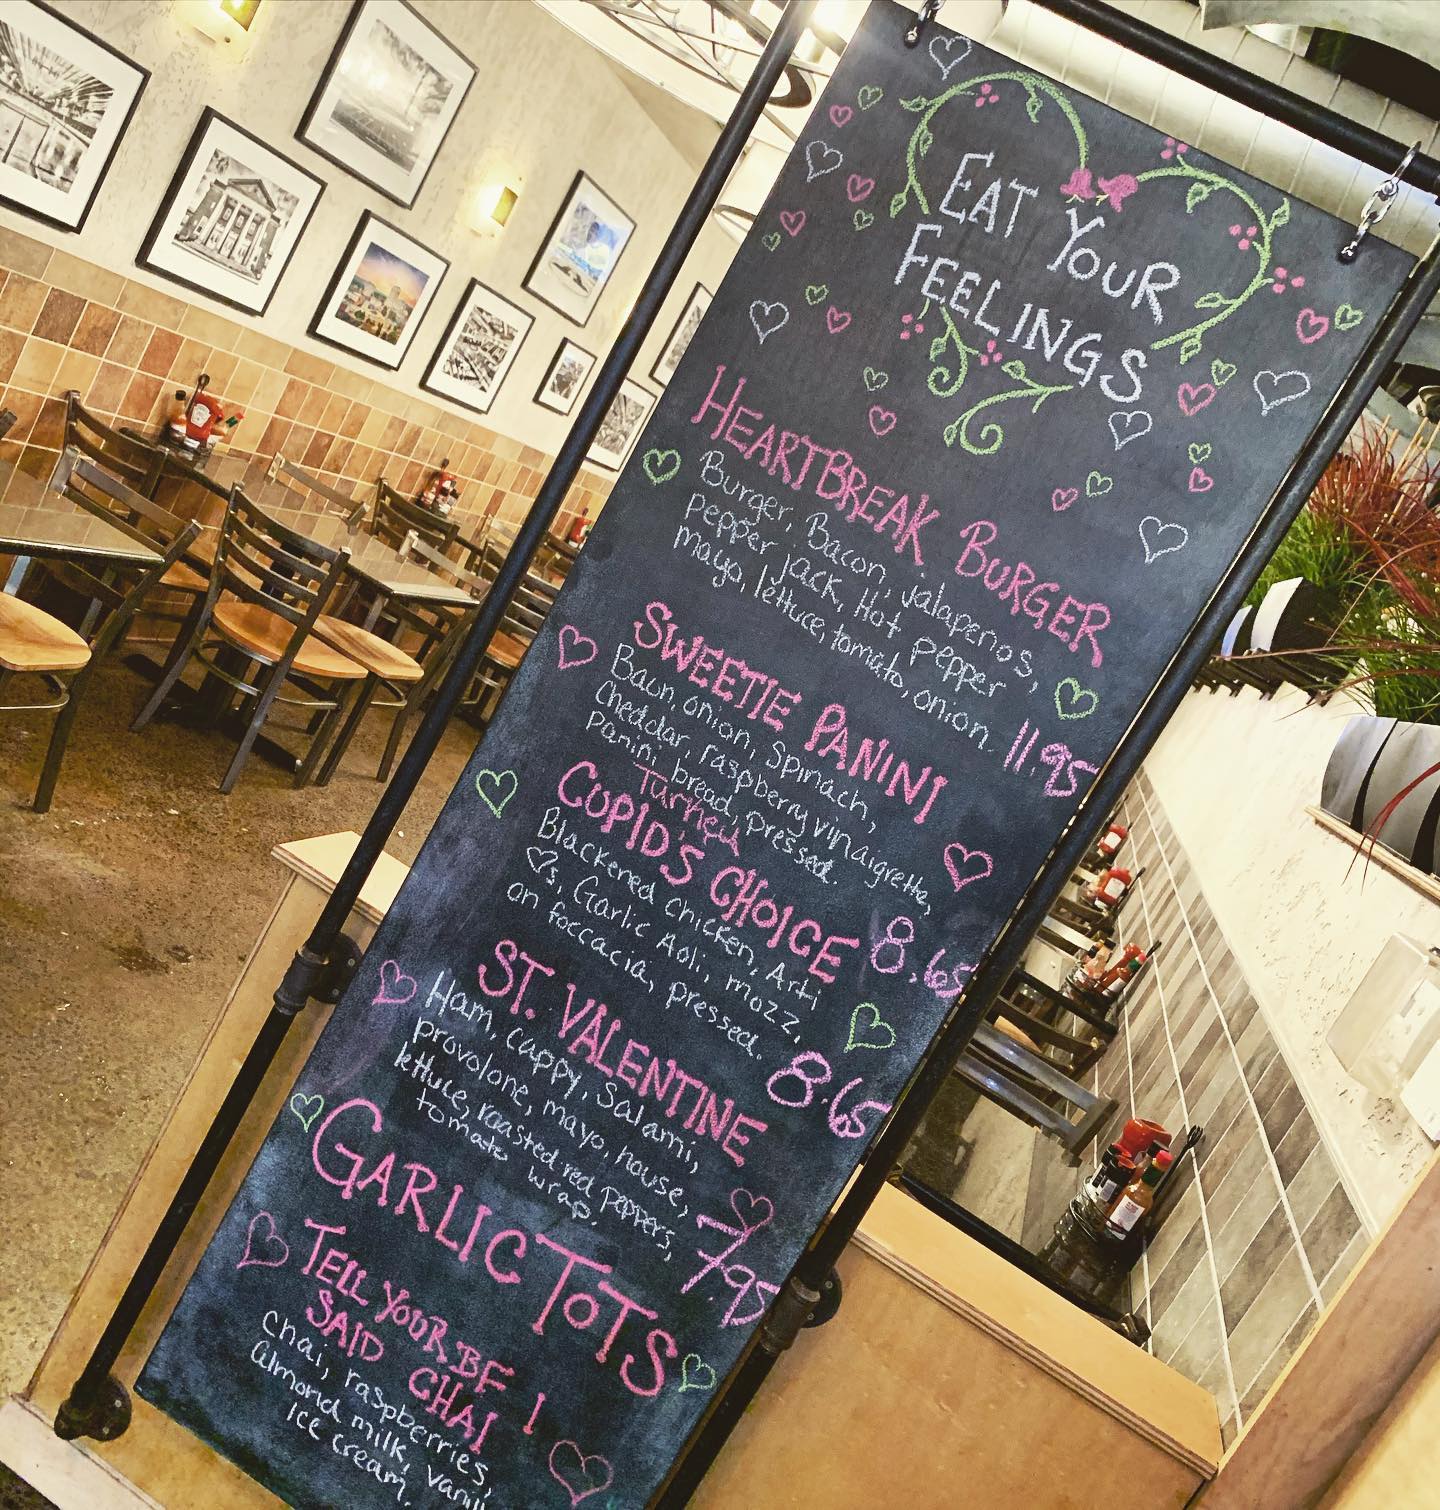 EAT YOUR
FEELINGS
HEARTBREAK BURGER
Burger, Bacon, jalapenos,
pepper jack, Hot pepper
mayo, lettuce, tomato, onion.
11.95
SWEETIE PANINI
Bacon, onion, spinach,
cheddar, raspberry vinaigrette,
panini bread, pressed.
8.65
Turned
CUPID'S CHOICE
Blackened chicken, Arti
♡s, Garlic Aoli, mozz,
on foccacia, pressed.
8.65
ST. VALENTINE
Ham, cappy, salami,
provolone, mayo, house,
lettuce, roasted red peppers,
tomato wrap.
7.95
GARLIC TOTS
TELL YOUR BF I
SAID CHAI
chai, raspberries,
almond milk, vanill
ice cream.